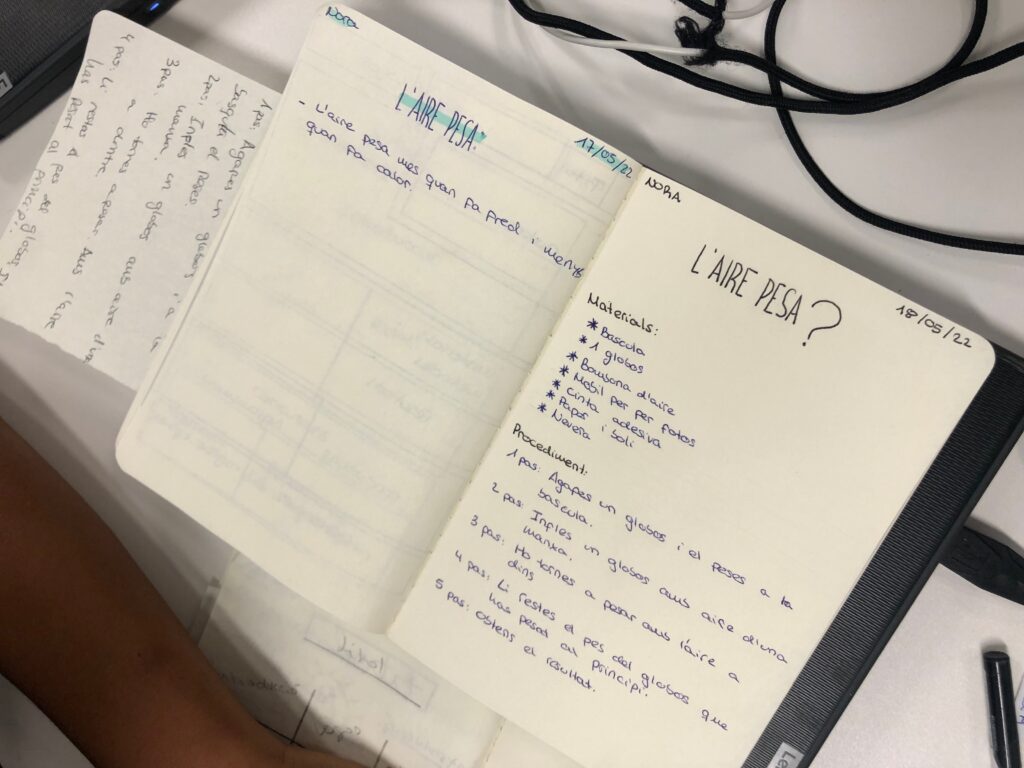 NORA
L'AIRE PESA:
17/05/22
- L'aire pesa mes quan fa fred i menys
quan fa calor.
NORA
L'AIRE PESA?
18/05/22
Materials:
* Bascula
* 1 globos
* Bombona d'aire
* Mobil per fer fotos
* Cinta adesiva
* Paper i boli
* Nevera
Procediment:
1 pas: Agafes un globos i el peses a la
bascula.
2 pas: Inples un globos amb aire d'una
manxa.
3 pas: Ho tornes a pesar amb l'aire a
dins
4 pas: Li restes el pes del globos que
has pesat al principi.
5 pas: Obtens el resultat.
1 pas: Agafes un globos i a la
2 pas: Inples
3 pas: Ho tornes a pesar amb l'aire
a dintre
4 pas: Li restes
has pesat al principi.